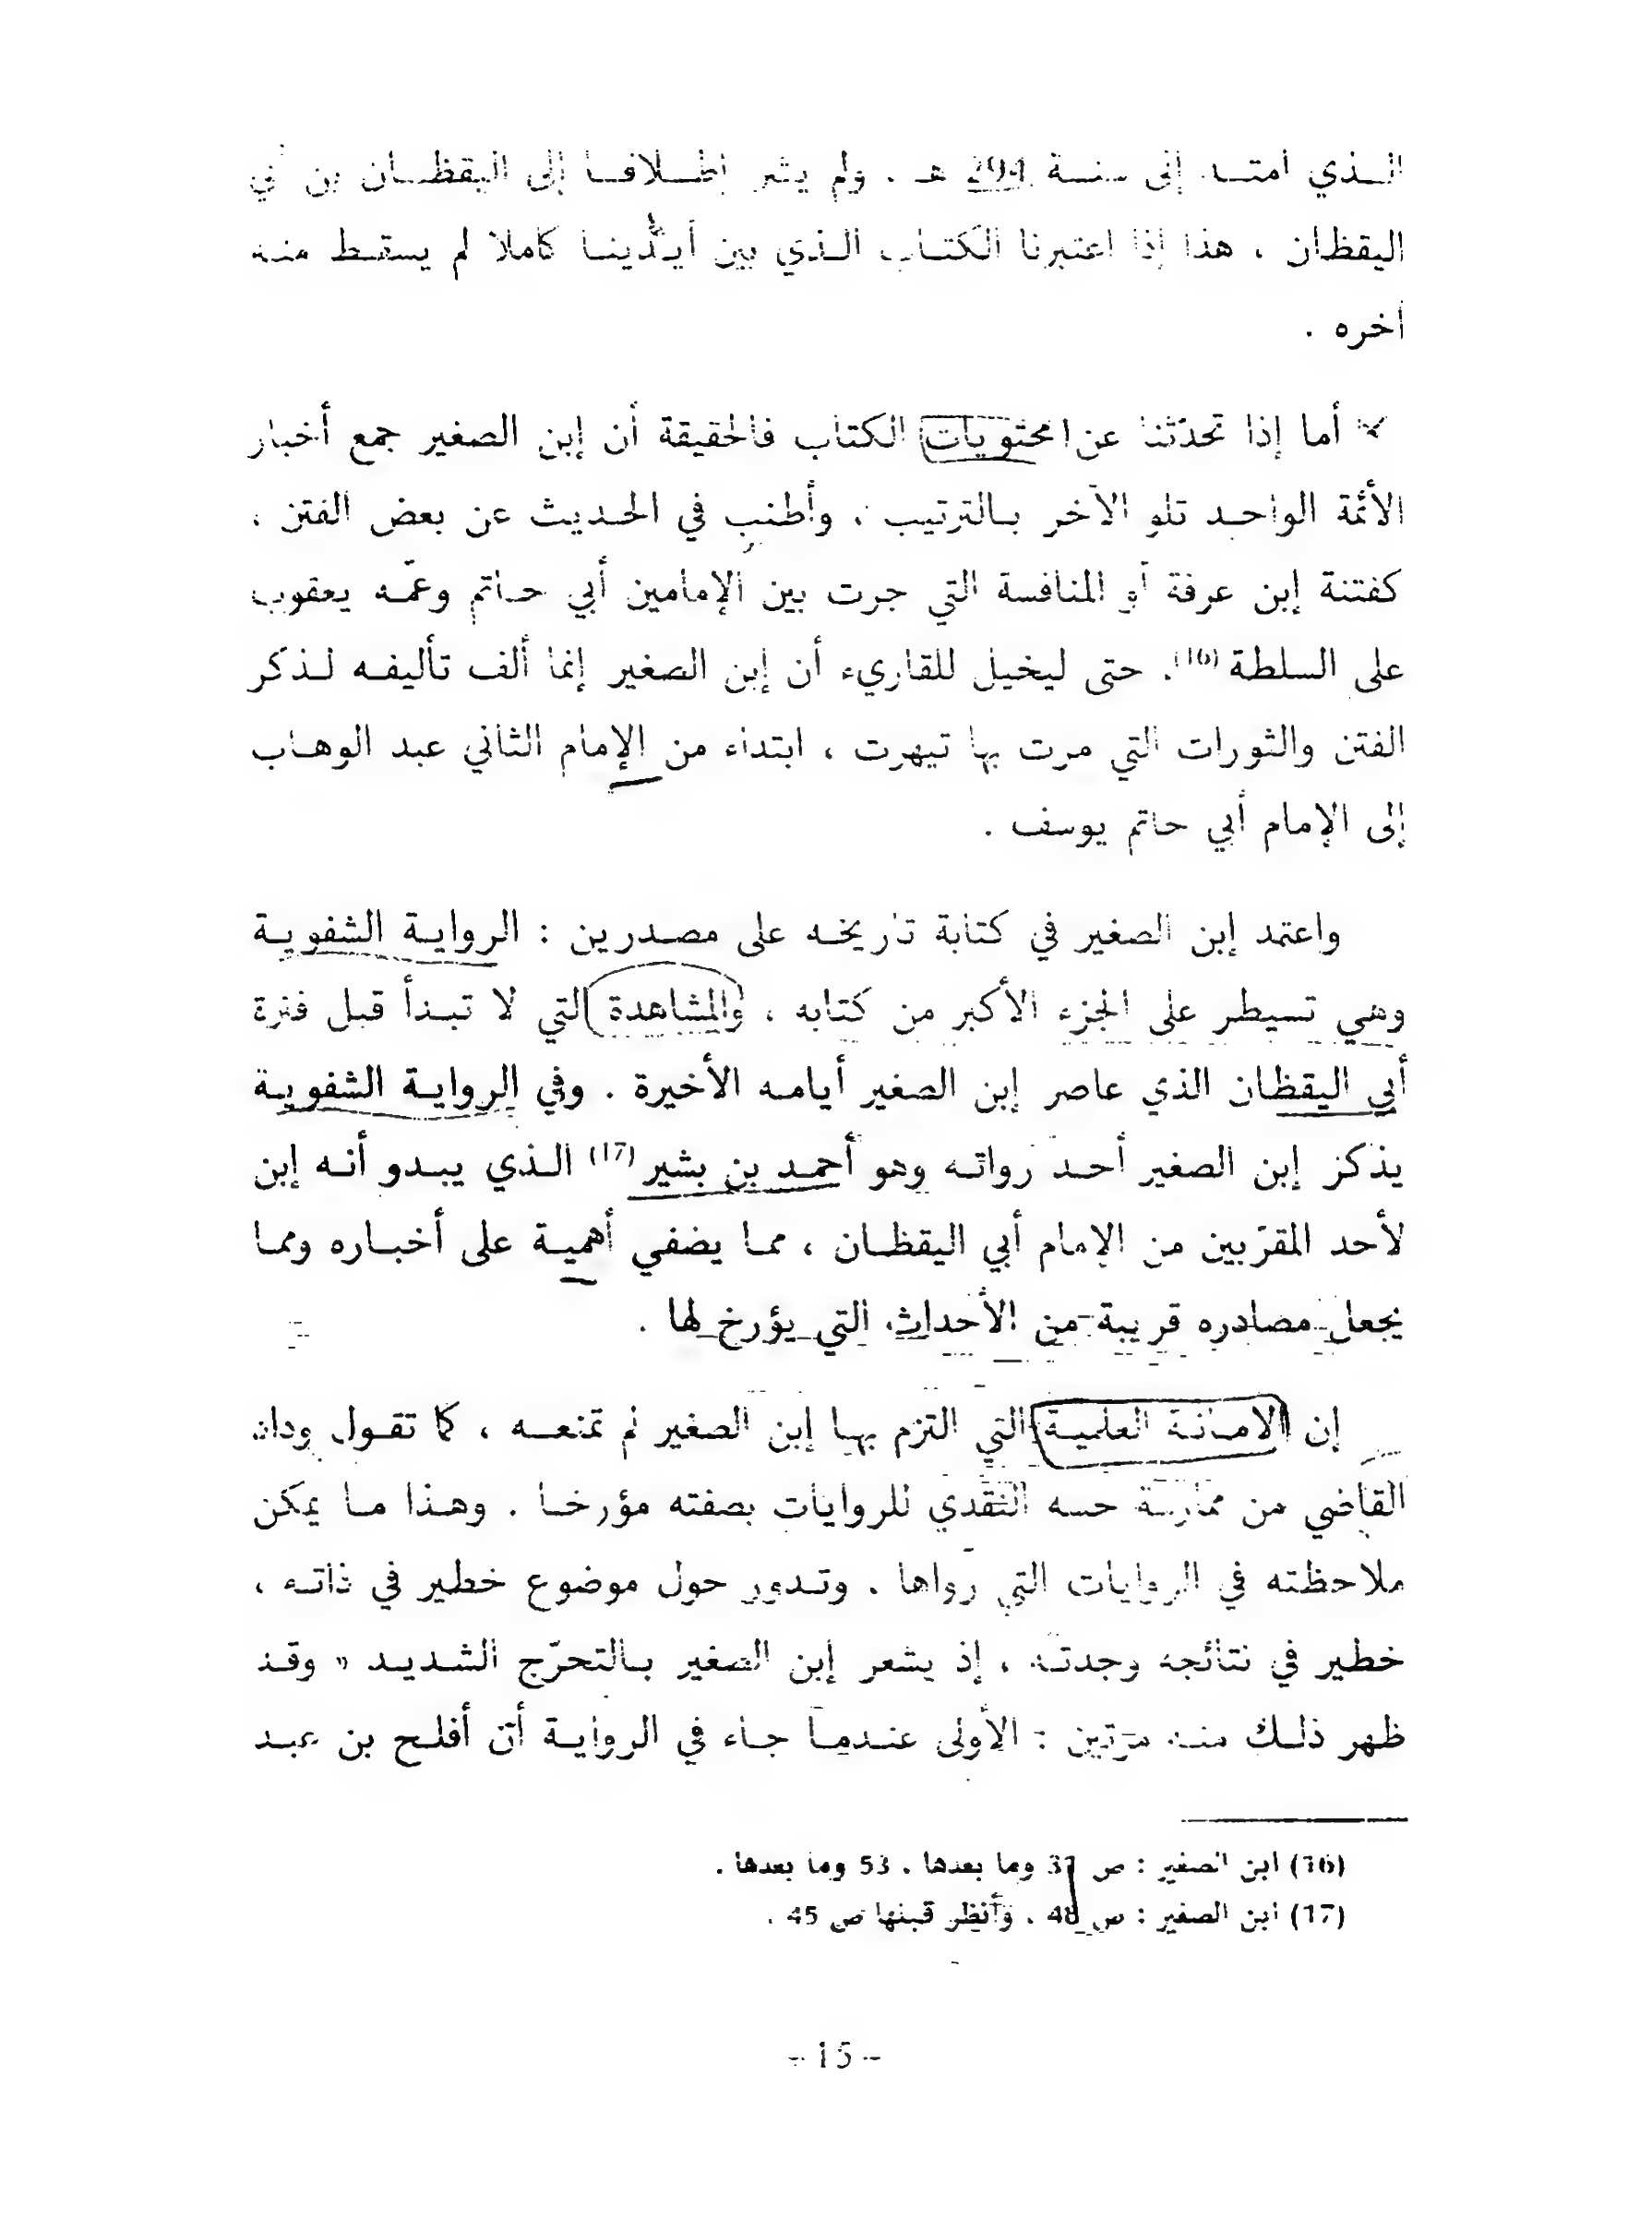 الـذي امتـد إلى سنـة 294 هـ . ولم يشر إطـلاقـا إلى اليقظـان بن أبي
اليقظان ، هذا إذا اعتبرنا الكتـاب الـذي بين أيـدينـا كاملا لم يسقـط منـه
أخره .
أما إذا تحدّثنا عن محتويات الكتاب فالحقيقة أن إبن الصغير جمع أخبار
الأئمة الواحـد تلو الآخر بـالترتيب ، وأطنب في الحـديث عن بعض الفتن ،
كفتنة إبن عرفة أو المنافسة التي جرت بين الإمامين أبي حـاتم وعمّـه يعقوب
على السلطة (16) . حتى ليخيل للقاريء أن إبن الصغير إنما ألف تأليفـه لـذكر
الفتن والثورات التي مرت بها تيهرت ، ابتداء من الإمام الثاني عبد الوهـاب
إلى الإمام أبي حاتم يوسف .
واعتمد إبن الصغير في كتابة تاريخـه على مصـدرين : الروايـة الشفويـة
وهي تسيطر على الجزء الأكبر من كتابه ، والمشاهدة التي لا تبـدأ قبل فترة
أبي اليقظان الذي عاصر إبن الصغير أيامـه الأخيرة . وفي الروايـة الشفويـة
يذكر إبن الصغير أحـد رواتـه وهو أحمـد بن بشير (17) الـذي يبـدو أنـه إبن
لأحد المقرّبين من الإمام أبي اليقظـان ، ممـا يضفي أهميـة على أخبـاره وممـا
يجعل مصادره قريبة من الأحداث التي يؤرخ لها .
إن الامـانـة العلميـة التي التزم بهـا إبن الصغير لم تمنعـه ، كما تقـول وداد
القاضي من ممارسة حسه النقدي للروايات بصفته مؤرخـا . وهـذا مـا يمكن
ملاحظته في الروايات التي رواها . وتـدور حول موضوع خطير في ذاتـه ،
خطير في نتائجه وجدتـه ، إذ يشعر إبن الصغير بـالتحرّج الشـديـد « وقـد
ظهر ذلـك منـه مرتين : الأولى عنـدمـا جـاء في الروايـة أن أفلـح بن عبـد
(16) ابن الصغير : ص 37 وما بعدها . 53 وما بعدها .
(17) ابن الصغير : ص 48 . وأنظر قبلها ص 45 .
- 15 -